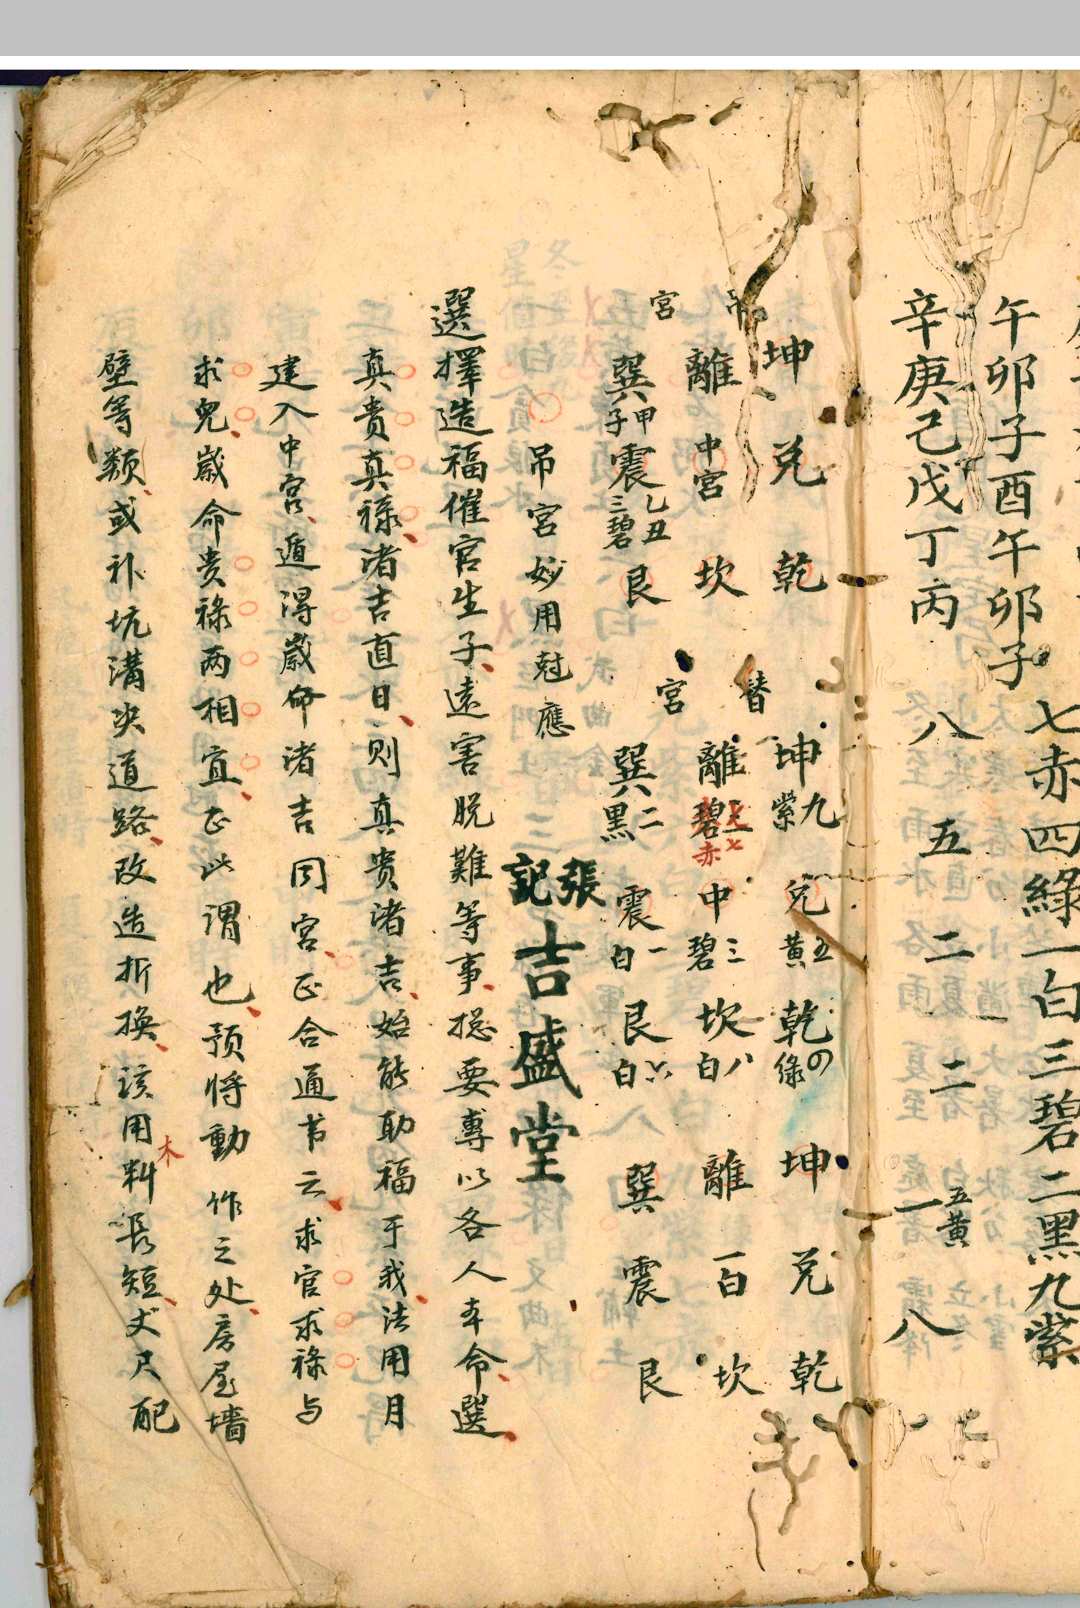 七赤四綠一白三碧二黑九紫
午卯子酉午卯子
八五二二五黃一八
辛庚己戊丁丙
吊 坤 兌 乾
宮 離 中宮 坎
巽甲子 震乙丑三碧 艮
替 坤九紫 兌五黃 乾四綠
宮 離 中三碧 坎八白
巽二黑 震一白 艮六白
坤 兌 乾
離 一白 坎
巽 震 艮
吊宮妙用尅應
張記吉盛堂
選擇造福催官生子遠害脫難等事總要專以各人本命選
真貴真祿渚吉直日則真貴渚吉始能助福于我法用月
建入中宮遁得歲命渚吉同宮正合通书云求官求祿与
求兒歲命贵祿两相宜正此謂也预将動作之处房屋墙
壁等類或补坑溝尖道路改造折換該用料木長短丈尺配